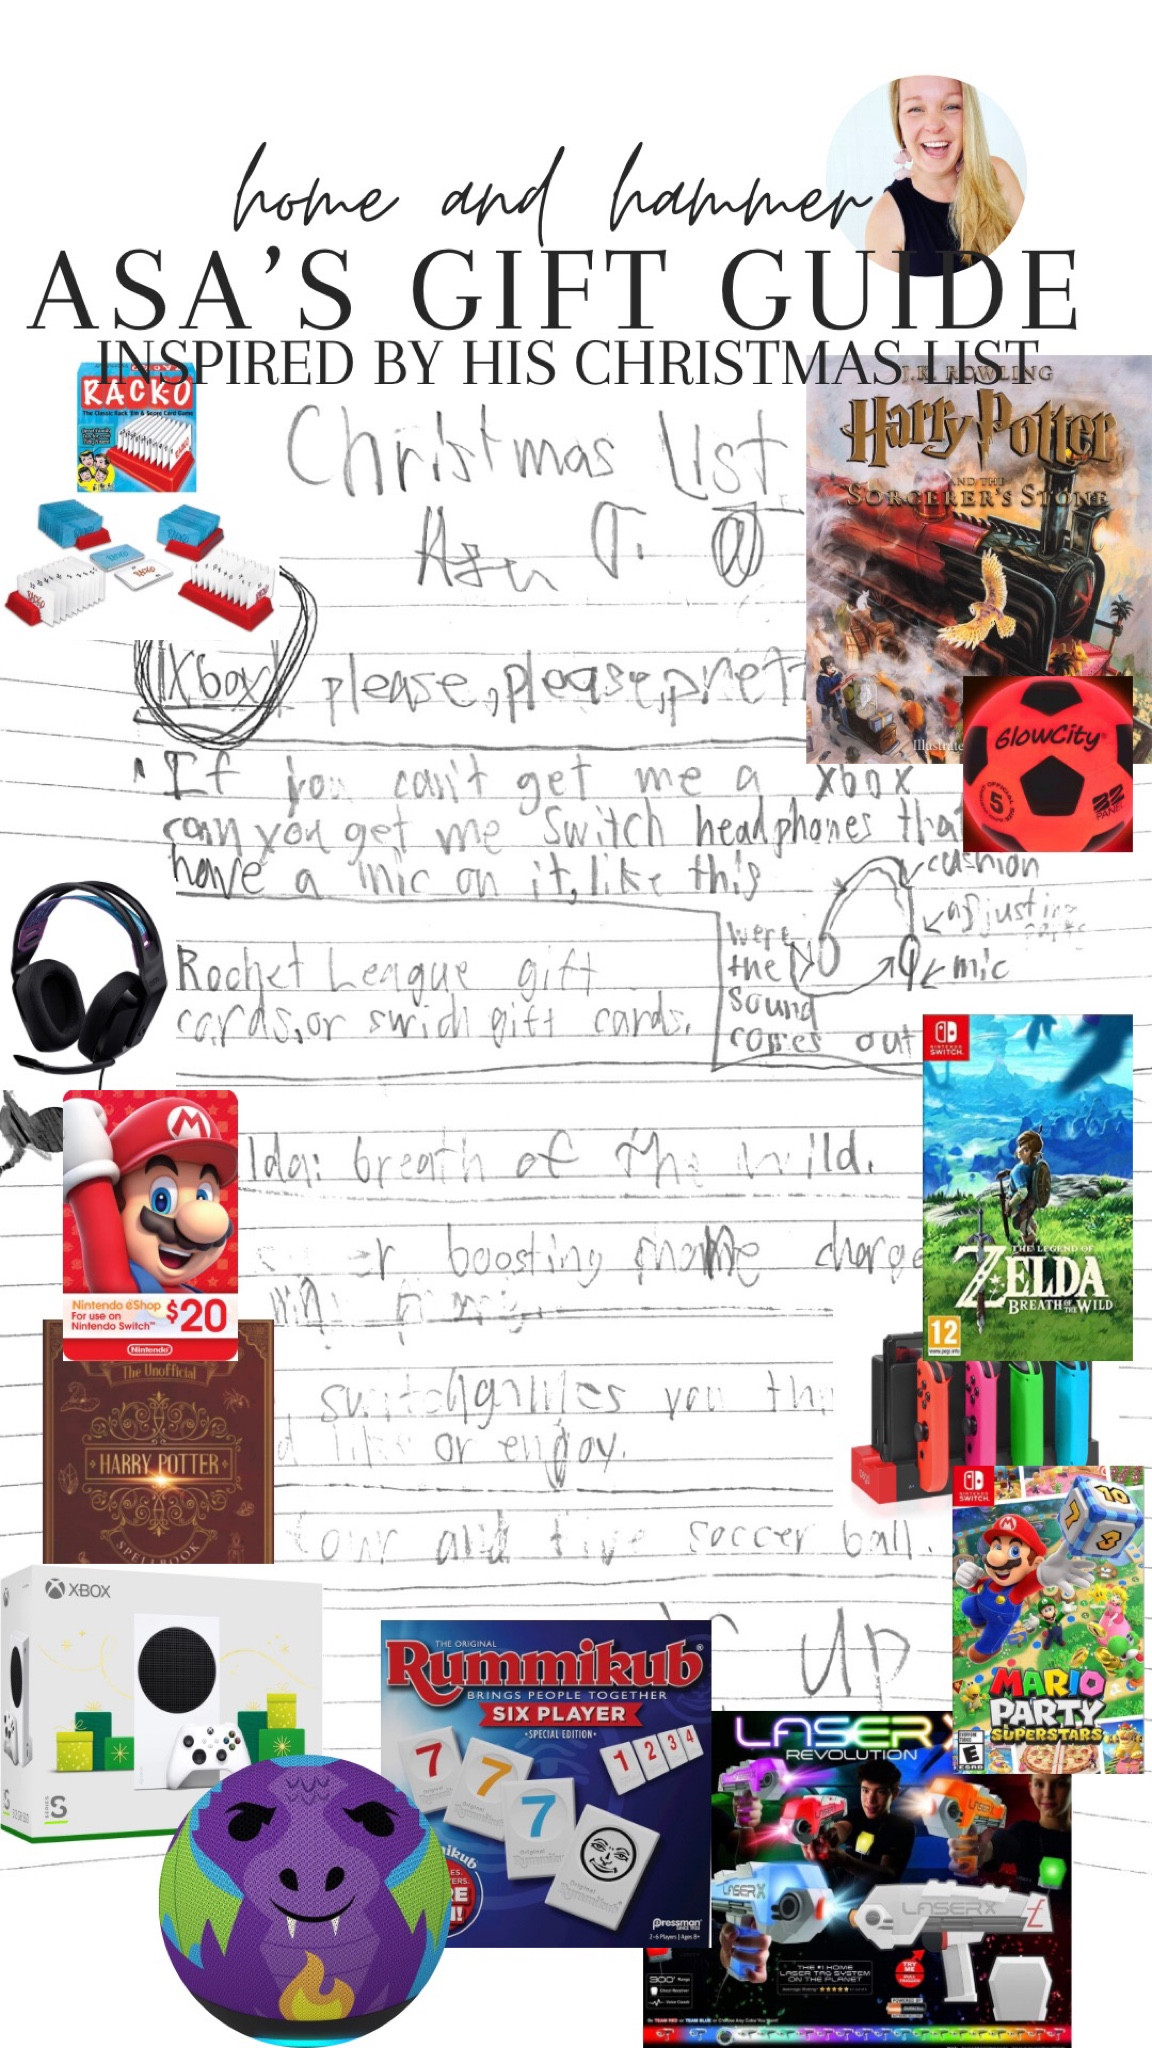 home and hammer
ASA'S GIFT GUIDE
INSPIRED BY HIS CHRISTMAS LIST
RACKO
The Classic Rack 'Em & Score Card Game
J.K. ROWLING
Harry Potter
AND THE
SORCERER'S STONE
Christmas List
Asa
Xbox please, please, prett
GlowCity
5
32
If you can't get me a xbox
can you get me Switch headphones that
have a mic on it, like this
cushion
adjusting
mic
were
the
sound
comes out
Rocket League gift
cards, or swich gift cards.
NINTENDO
SWITCH
lda: breath of the wild.
THE LEGEND OF
ZELDA
BREATH OF THE WILD
12
boosting phone charge
Nintendo eShop
For use on
Nintendo Switch™
$20
Nintendo
The Unofficial
HARRY POTTER
SPELLBOOK
switch games you thi
d like or enjoy.
and five soccer ball.
UP
NINTENDO
SWITCH
10
7
3
MARIO
PARTY
SUPERSTARS
EVERYONE
E
ESRB
XBOX
SERIES S
S
THE ORIGINAL
Rummikub®
BRINGS PEOPLE TOGETHER
SIX PLAYER
•SPECIAL EDITION•
7 7 7
1 2 3 4
Original
Rummikub
Pressman
2-6 Players | Ages 8+
LASER X
REVOLUTION
LASER X
LASER X
THE #1 HOME
LASER TAG SYSTEM
ON THE PLANET
TRY
ME
300'